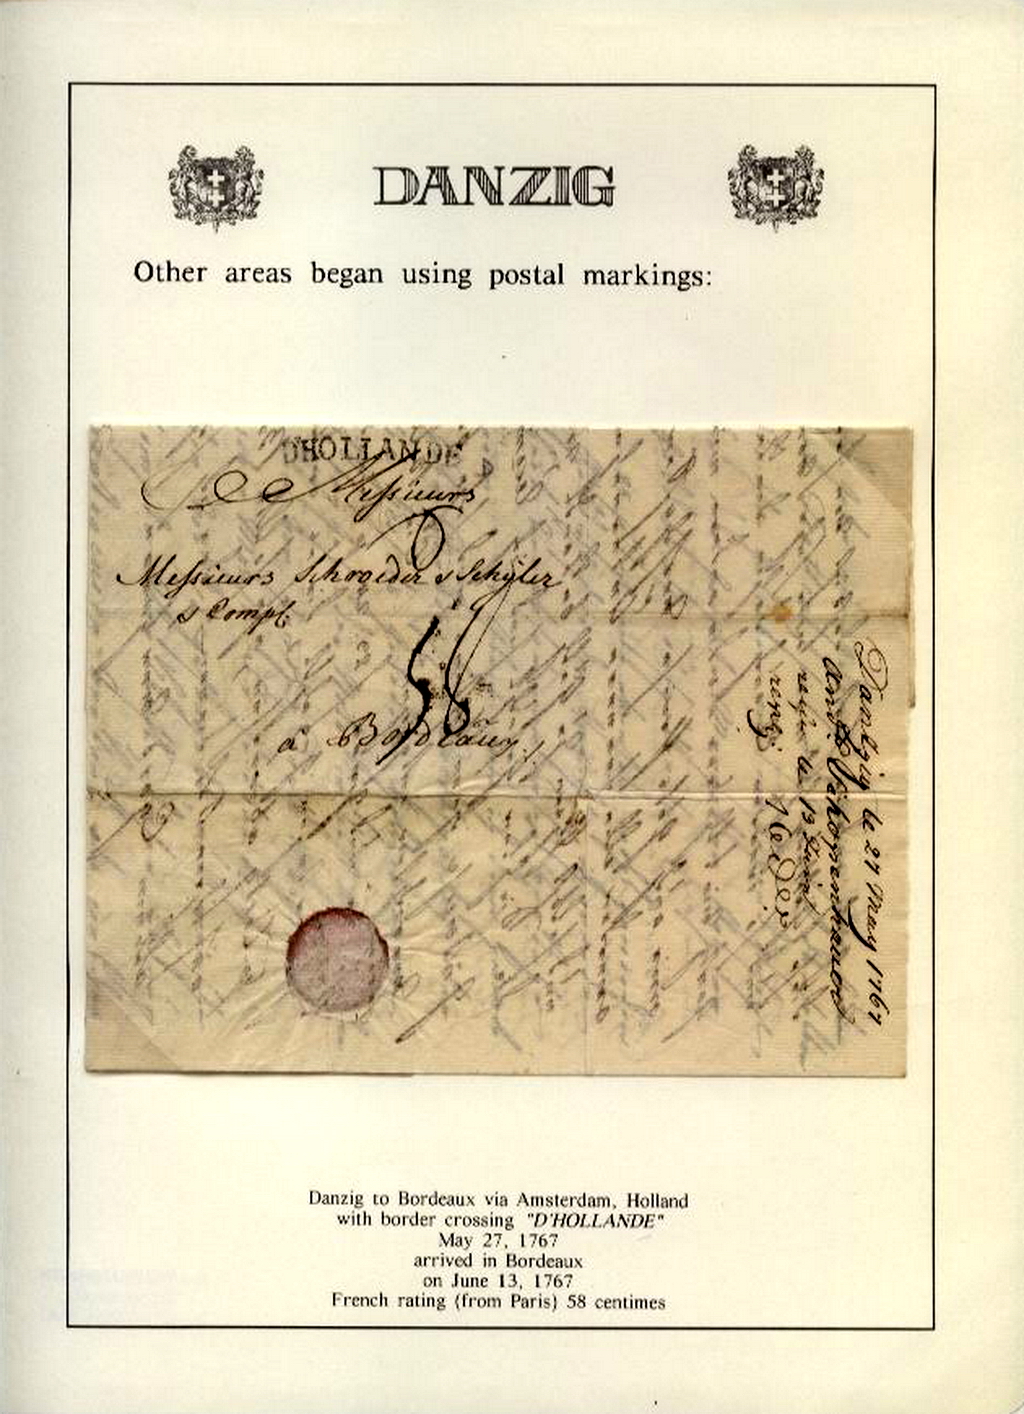 DANZIG
Other areas began using postal markings:
D'HOLLANDE
Messieurs
Messieurs Schroeder & Schÿler
& Compe
58
à Bordeaux
Dantzig le 27 May 1767
André Schopenhauer
reçu le 13 Juin
Danzig to Bordeaux via Amsterdam, Holland
with border crossing "D'HOLLANDE"
May 27, 1767
arrived in Bordeaux
on June 13, 1767
French rating (from Paris) 58 centimes